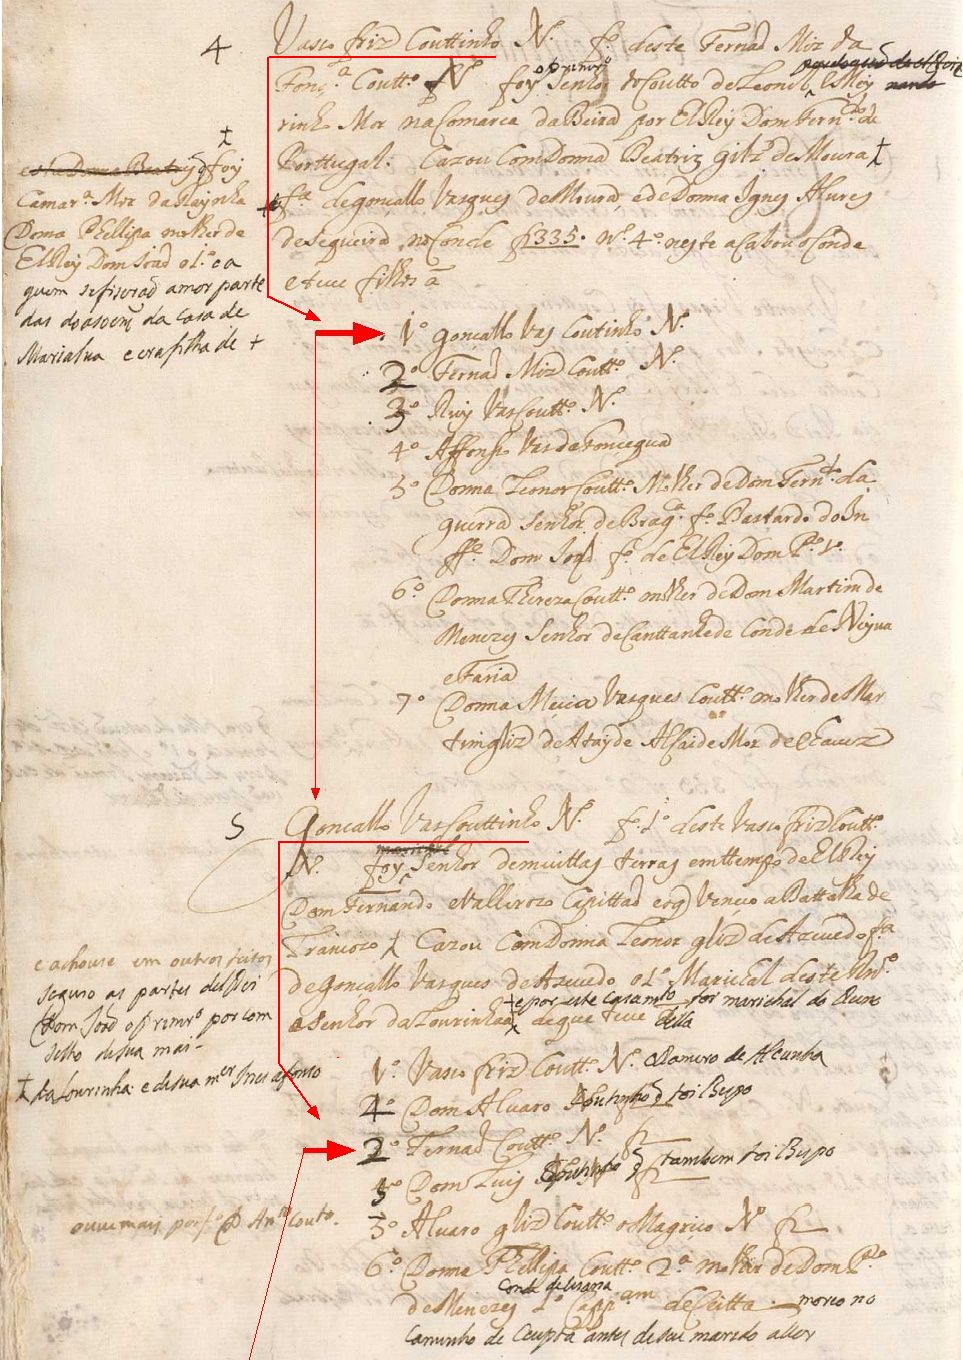 4
Vasco friz Couttinho N.º fº deste Fernaõ Miz da
Fonç.ª Coutt.º Nº foy o primrº Senhor do Coutto de Leomil, ElRey
rinho Mor na Comarca da Beira por ElRey Dom Fern.do de
Porttugal: Cazou Com Donna Beatriz glz de Moura
fª de gonçallo Vasques de Moura, e de Donna Ignes Alures
de sequeira, no Conde f 335. Nº. 4º neste acabou o Conde
e teue filhos a
esta Donna Beatriz foy
Camar.ª Mor da Raynha
Dona Phellipa molher de
ElRey Dom Joaõ o 1.º e a
quem se fiseraõ a mor parte
das doasoens da Casa de
Marialua e era filha de +
1º gonçallo Vas Coutinho Nº.
2º Fernaõ Miz Coutt.º Nº.
3º Ruy Vas Coutt.º Nº.
4º Affonso Vas da Foncequa
5º Donna Leonor Coutt.º Molher de Dom Fern.do da
guerra Senhor de Brag.ª fº Bastardo do In
ffe Dom Joaõ fº de ElRey Dom Pº 1º.
6º Donna Thereza Coutt.º molher de Dom Martim de
Menezes Senhor de Canttanhede Conde de Neyua
e Faria
7º Donna Mecia Vasques Coutt.º molher de Mar
tim glz de Atayde Alcaide Mor de Chaues
5
Goncallo Vas Couttinho Nº. fº 1º deste Vasco friz Coutt.º
Nº. foy marichal Senhor de muittas terras em ttempo de ElRey
Dom Fernando e Vallerozo Capittaõ e o q Venceo a Battalha de
Trancozo Cazou Com Donna Leonor glz de Azeuedo fª
de Gonçallo Vasques de Azeuedo o 1º Marichal deste Rnº
e Senhor da Lourinhaã e por este casamto for marichal do Reino
de que teue della
e achouse em outros feitos
seguro as partes delRei
Dom Joaõ o primrº por com
selho de sua mai-
da Lourinha: e de sua mer Ines afonso
1º. Vasco friz Coutt.º Nº. o Ramiro de Alcunha
4º Dom Aluaro Coutinho q foi Bispo
2º Fernaõ Coutt.º Nº.
5º Dom Luis Coutinho tambem foi Bispo
ouue mais por fº D. Antº Couto.
3º Aluaro glz Coutt.º o Magriço Nº
6º Donna Phellipa Coutt.º 2ª molher de Dom Pº
de Menezes 1º Capp.am de Ceitta moreo no
Conde de Viana
Caminho de Ceupta antes de seu marido a ller